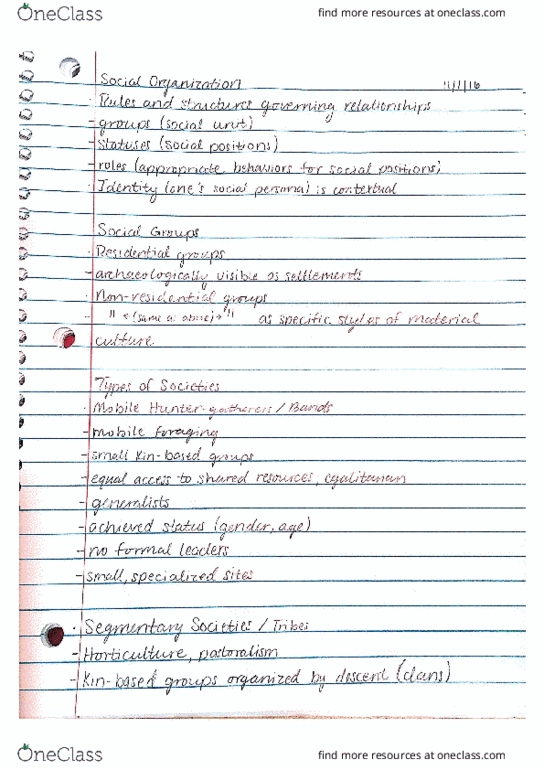 OneClass
find more resources at oneclass.com
Social Organization
· Rules and structures governing relationships
- groups (social unit)
- Statuses (social positions)
- roles (appropriate behaviors for social positions)
· Identity (one's social persona) is contextual
Social Groups
· Residential groups
- archaeologically visible as settlements
· Non-residential groups
- " ←(same as above)→ " as specific styles of material
culture
Types of Societies
· Mobile Hunter-gatherers / Bands
- mobile foraging
- small kin-based groups
- equal access to shared resources, egalitarian
- generalists
- achieved status (gender, age)
- no formal leaders
- small, specialized sites
· Segmentary Societies / Tribes
- Horticulture, pastoralism
- Kin-based groups organized by descent (clans)
OneClass
find more resources at oneclass.com